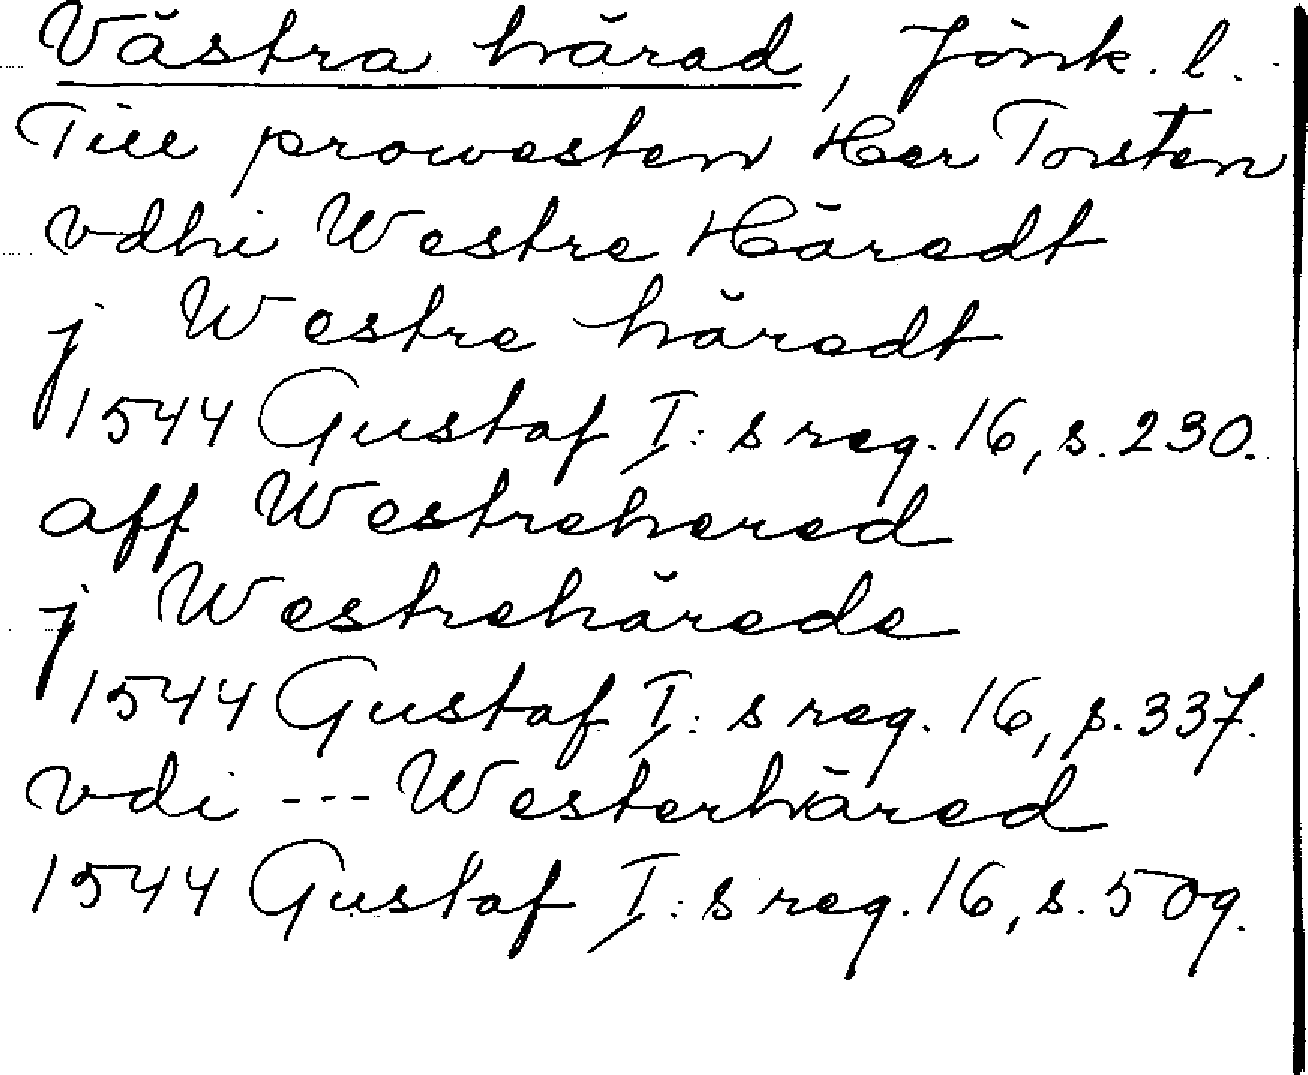 Västra härad, Jönk. l.
Till prowesten Her Torsten
vdhi Westre Häredt
j Westre häredt
1544 Gustaf I:s reg. 16, s. 230.
aff Westrehered
j Westrehärede
1544 Gustaf I:s reg. 16, s. 337.
vdi --- Westerhäred
1544 Gustaf I:s reg. 16, s. 509.